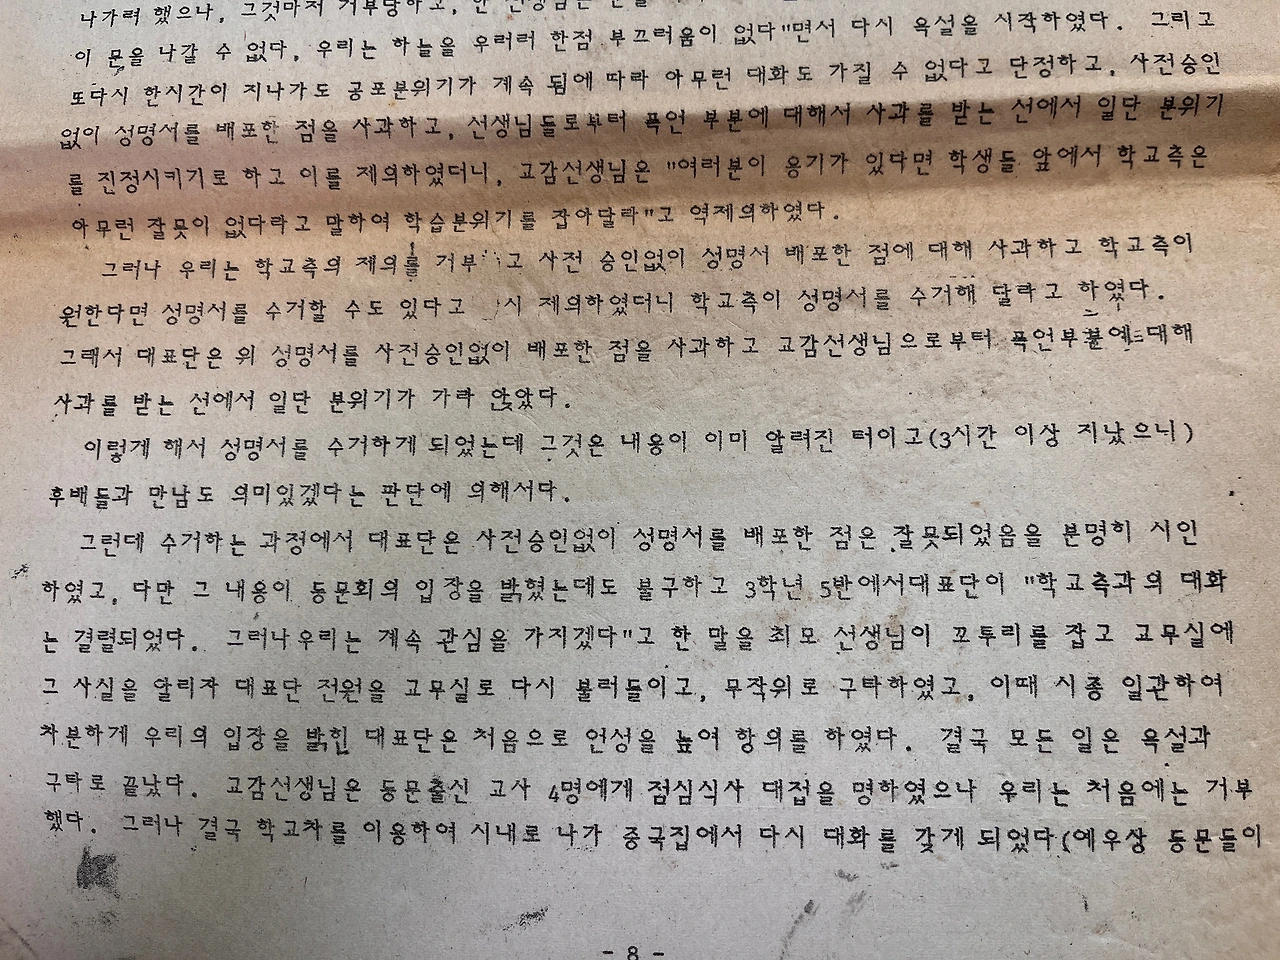 나가려 했으나, 그것마저 거부당하고, 한 선생님은
이 문을 나갈 수 없다, 우리는 하늘을 우러러 한점 부끄러움이 없다"면서 다시 욕설을 시작하였다. 그리고
또다시 한시간이 지나가도 공포분위기가 계속 됨에 따라 아무런 대화도 가질 수 없다고 단정하고, 사전승인
없이 성명서를 배포한 점을 사과하고, 선생님들로부터 폭언 부분에 대해서 사과를 받는 선에서 일단 분위기
를 진정시키기로 하고 이를 제의하였더니, 교감선생님은 "여러분이 용기가 있다면 학생들 앞에서 학교측은
아무런 잘못이 없다라고 말하여 학습분위기를 잡아달라"고 역제의하였다.
그러나 우리는 학교측의 제의를 거부 고 사전 승인없이 성명서 배포한 점에 대해 사과하고 학교측이
원한다면 성명서를 수거할 수도 있다고 시 제의하였더니 학교측이 성명서를 수거해 달라고 하였다.
그래서 대표단은 위 성명서를 사전승인없이 배포한 점을 사과하고 교감선생님으로부터 폭언부분에 대해
사과를 받는 선에서 일단 분위기가 가라 앉았다.
이렇게 해서 성명서를 수거하게 되었는데 그것은 내용이 이미 알려진 터이고(3시간 이상 지났으니)
후배들과 만남도 의미있겠다는 판단에 의해서다.
그런데 수거하는 과정에서 대표단은 사전승인없이 성명서를 배포한 점은 잘못되었음을 분명히 시인
하였고, 다만 그 내용이 동문회의 입장을 밝혔는데도 불구하고 3학년 5반에서대표단이 "학교측과의 대화
는 결렬되었다. 그러나우리는 계속 관심을 가지겠다"고 한 말을 최모 선생님이 꼬투리를 잡고 교무실에
그 사실을 알리자 대표단 전원을 교무실로 다시 불러들이고, 무작위로 구타하였고, 이때 시종 일관하여
차분하게 우리의 입장을 밝힌 대표단은 처음으로 언성을 높여 항의를 하였다. 결국 모든 일은 욕설과
구타로 끝났다. 교감선생님은 동문출신 교사 4명에게 점심식사 대접을 명하였으나 우리는 처음에는 거부
했다. 그러나 결국 학교차를 이용하여 시내로 나가 중국집에서 다시 대화를 갖게 되었다(예우상 동문들이
- 8 -